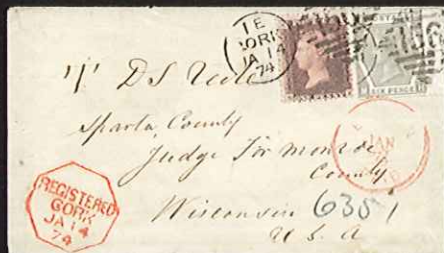 1 E
CORK
JA 14
74
SIX PENCE
D S
Sparta, County
Judge For Monroe
County
Wisconsin 635
U. S. A
JAN
REGISTERED
CORK
JA 14
74